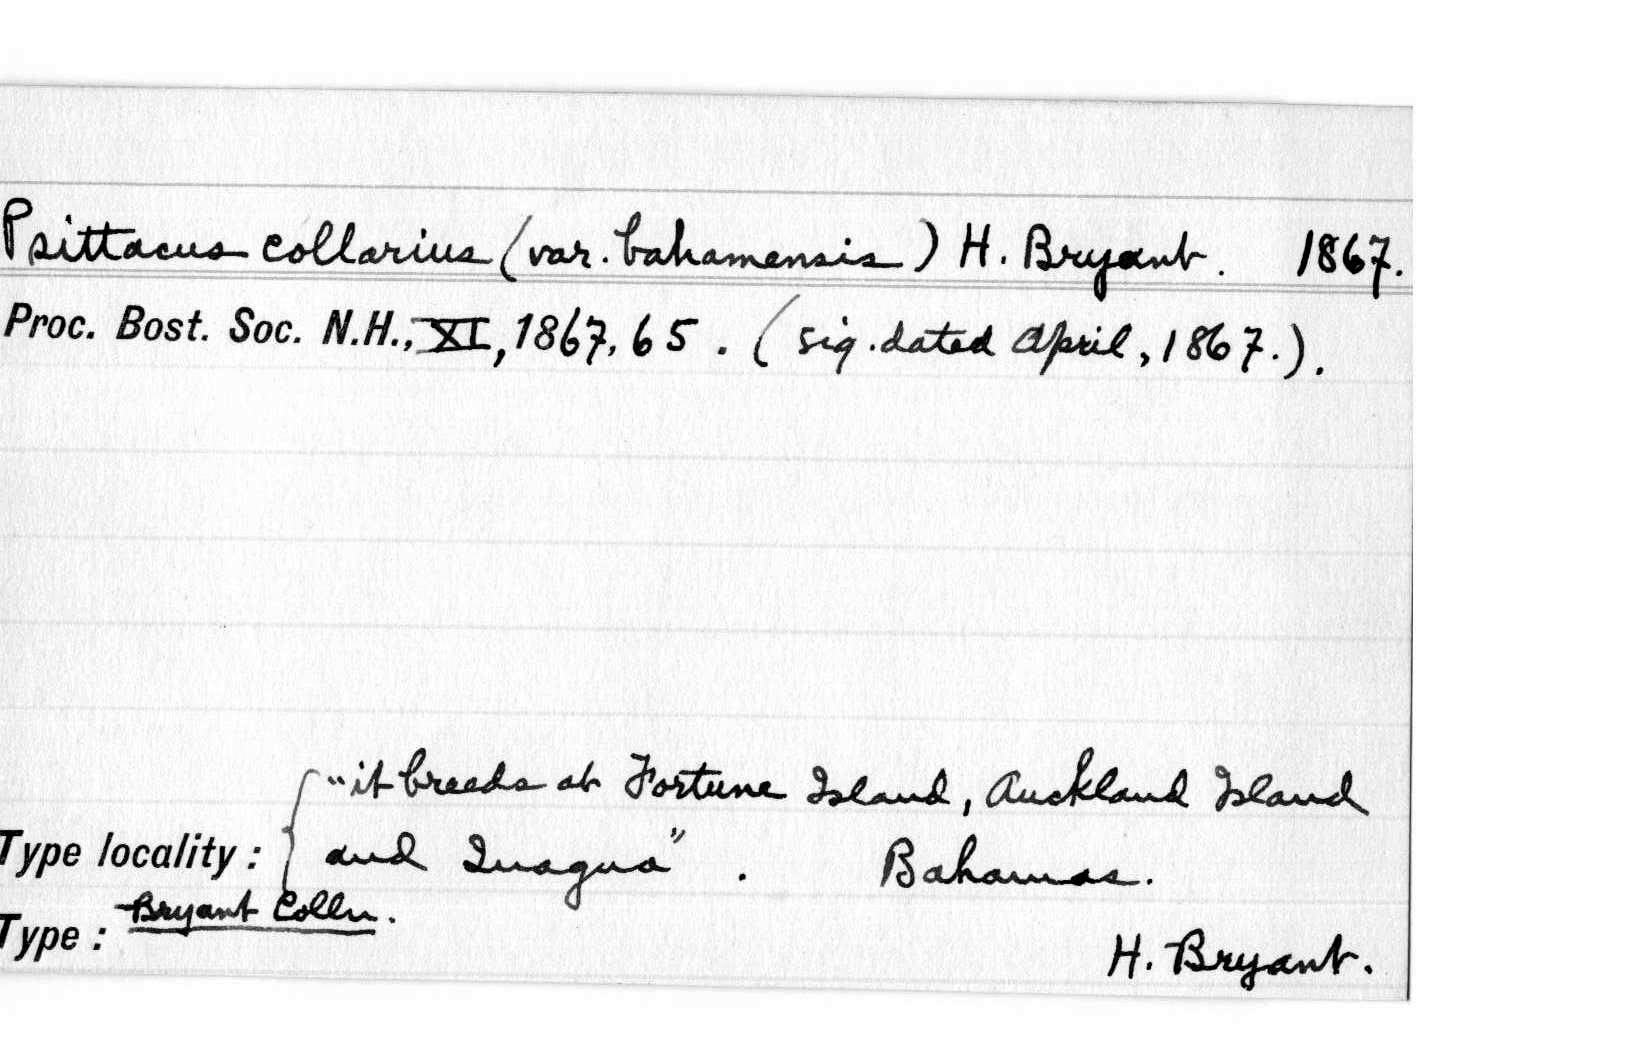 Psittacus collarius (var. bahamensis) H. Bryant. 1867.
Proc. Bost. Soc. N.H., XI, 1867, 65. (sig. dated April, 1867.).
"it breeds at Fortune Island, Auckland Island
Type locality: and Inagua". Bahamas.
Type: Bryant Colln.
H. Bryant.